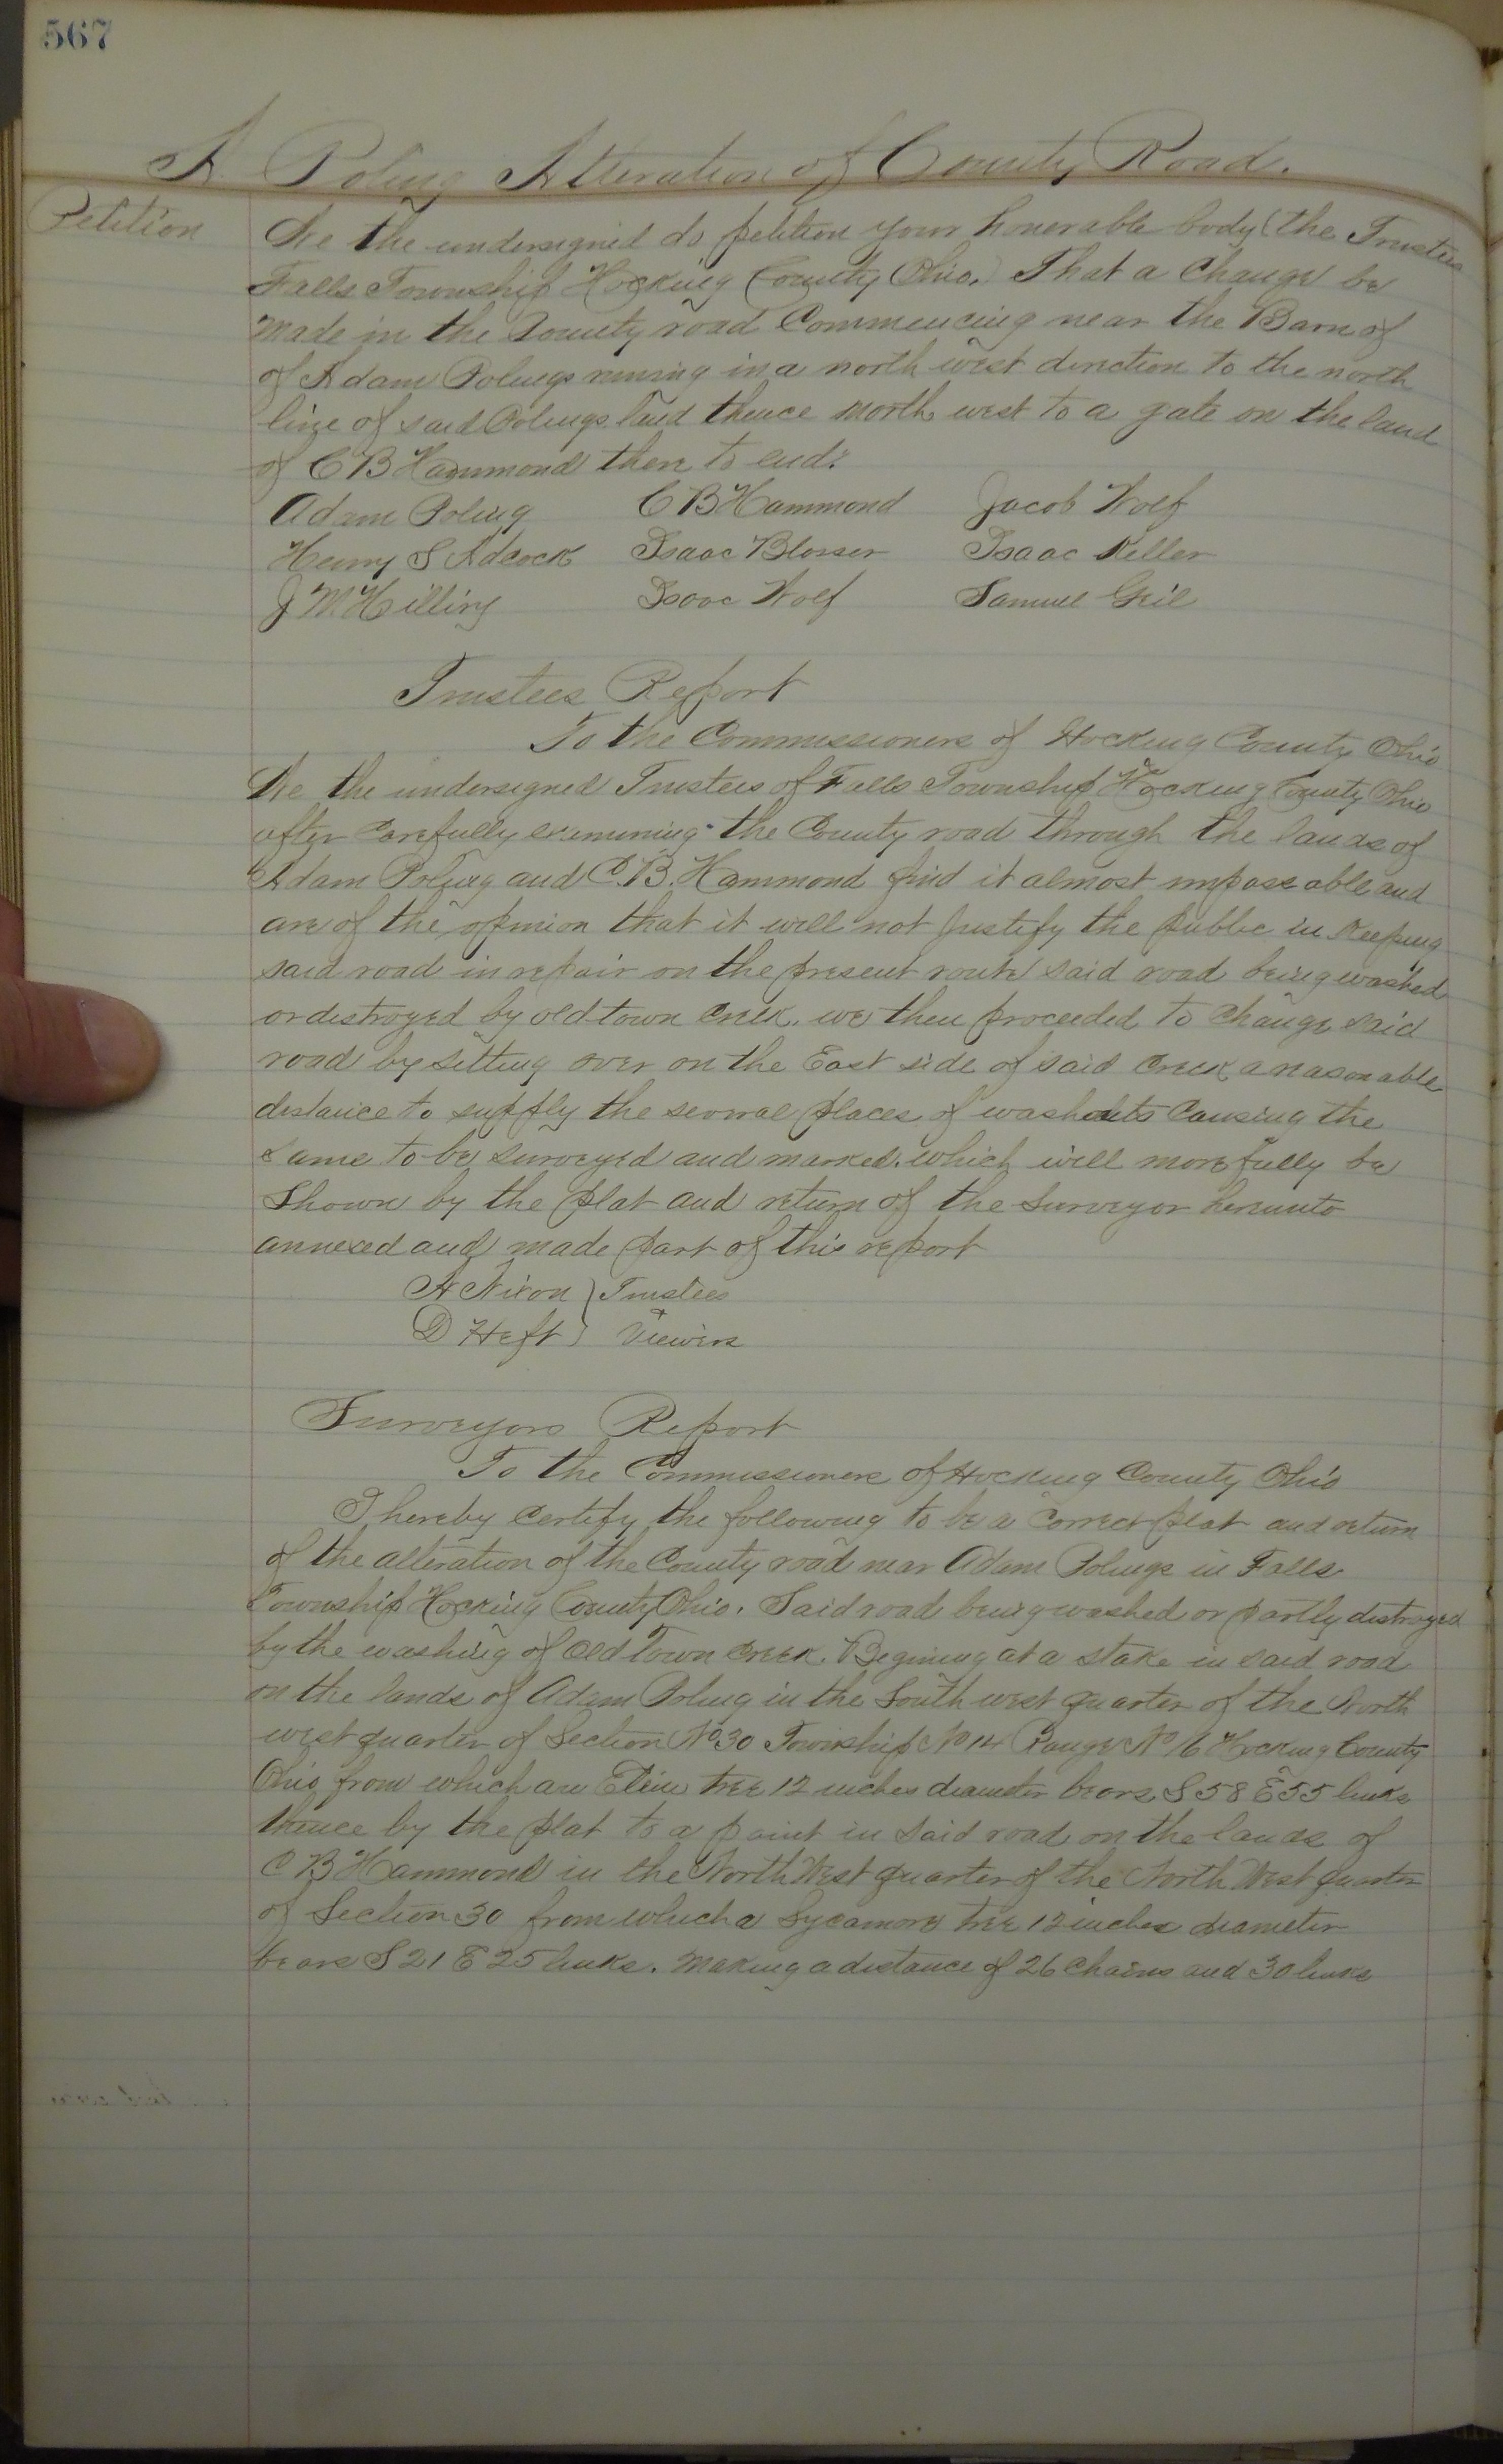 567
A. Poling Alteration of County Road.
Petition
We the undersigned do petition your honerable body (the Trustees
Falls Township Hocking County Ohio.) That a Change be
made in the County road Commencing near the Barn of
of Adam Polings running in a north west direction to the north
line of said Polings land thence north west to a gate on the land
of C B Hammond then to end.
Adam Poling C B Hammond Jacob Wolf
Henry S Adcock Isaac Blosser Isaac Keller
J M Hilling Isaac Wolf Samuel
Trustees Report
To the Commissioners of Hocking County Ohio
We the undersigned Trustees of Falls Township Hocking County Ohio
after Carefully examining the County road through the lands of
Adam Poling and C. B. Hammond find it almost impassable and
are of the opinion that it will not Justify the public in Keeping
said road in repair on the present route said road being washed
or distroyed by old town Creek. we then proceeded to Change said
road by setting over on the East side of said Creek a reasonable
distance to supply the several places of washouts Causing the
same to be surveyed and marked. which will more fully be
Shown by the plat and return of the Surveyor hereunto
annexed and made part of this report
A Nixon } Trustees
D Heft } & Viewers
Surveyors Report
To the Commissioners of Hocking County Ohio
I hereby Certify the following to be a Correct plat and return
of the alteration of the County road near Adam Polings in Falls
Township Hocking County Ohio. Said road being washed or partly distroyed
by the washing of Old Town Creek. Begining at a stake in said road
on the lands of Adam Poling in the South west quarter of the North
west quarter of Section No 30 Township No 14 Range No 16 Hocking County
Ohio from which an Elm tree 12 inches diameter bears S 58 E 55 links
thence by the plat to a point in said road on the lands of
C B Hammond in the North West quarter of the North West quarter
of Section 30 from which a Sycamore tree 12 inches diameter
bears S 21 E 25 links. making a distance of 26 Chains and 30 links